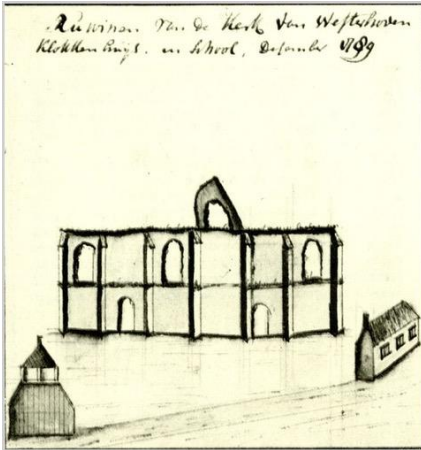 Ruwinen van de Kerk van Westerhoven
Klokkenhuijs. en School, December 1789